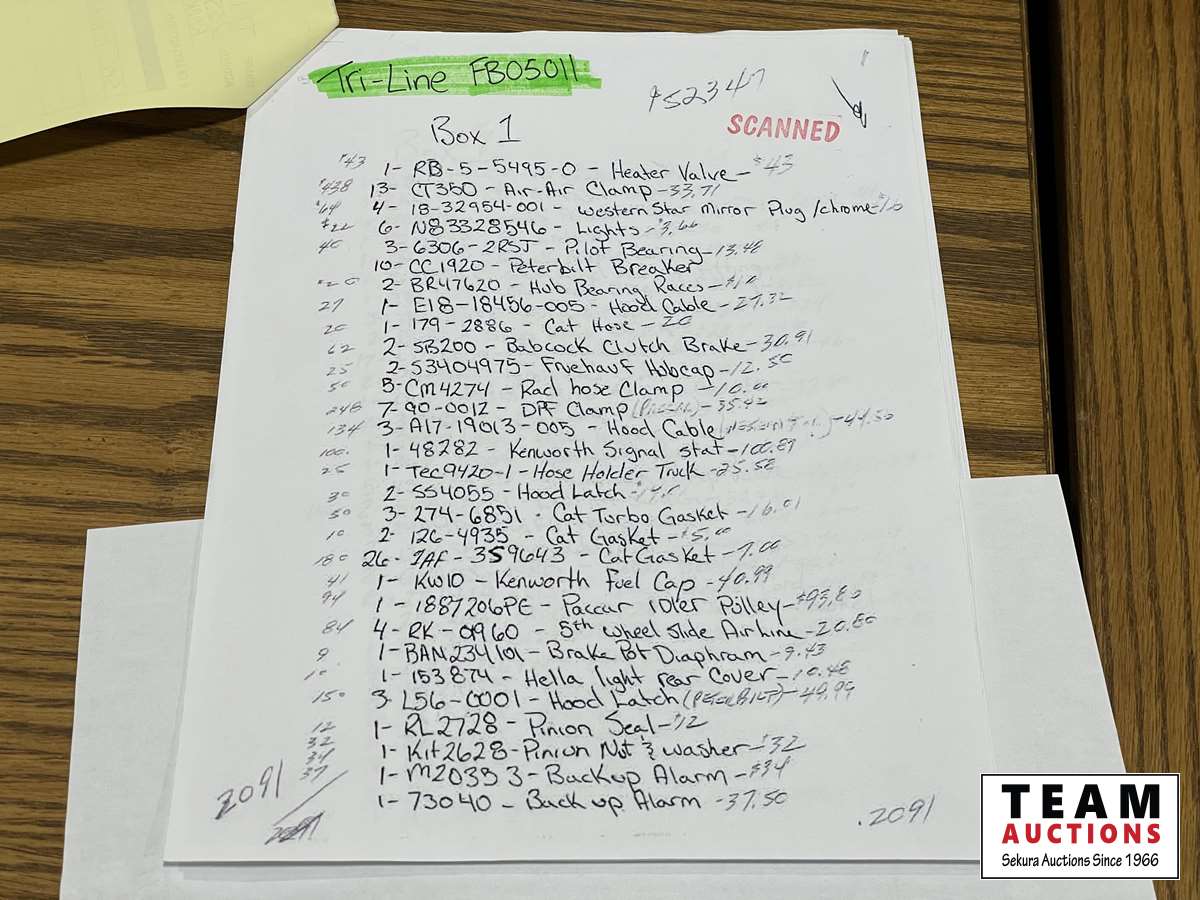 Tri-Line FB05011
$52347
SCANNED
Box 1
$43 1- RB-5-5495-0 - Heater Valve - $43
$438 13- CT350 - Air-Air Clamp - 33.71
$64 4- 18-32954-001 - Western Star Mirror Plug /chrome - $16
$22 6- N83328546 - Lights - $3.66
40 3- 6306-2RSJ - Pilot Bearing - 13.48
10- CC1920 - Peterbilt Breaker
$20 2- BR47620 - Hub Bearing Races - $10
27 1- E18-18456-005 - Hood Cable - 27.32
20 1- 179-2886 - Cat Hose - 20
62 2- SB200 - Babcock Clutch Brake - 30.91
25 2- S3404975 - Fruehauf Hubcap - 12.50
50 5- CM4274 - Rad hose Clamp - 10.00
248 7- 90-0012 - DPF Clamp - 35.42
134 3- A17-19013-005 - Hood Cable - 44.50
100. 1- 48282 - Kenworth Signal Stat - 100.89
25 1- Tec9420-1 - Hose Holder Truck - 25.58
30 2- SS4055 - Hood Latch
50 3- 274-6851 - Cat Turbo Gasket - 16.01
10 2- 126-4935 - Cat Gasket - $5.00
180 26- IAF-3S9643 - Cat Gasket - 7.00
41 1- KW10 - Kenworth Fuel Cap - 40.99
94 1- 1887206PE - Paccar Idler Pulley - $93.80
84 4- RK-0960 - 5th Wheel Slide Airline - 20.80
9 1- BAN234101 - Brake Pot Diaphram - 9.43
10 1- 153874 - Hella light rear Cover - 10.48
150 3- L56-0001 - Hood Latch (PETERBILT) - 49.99
12 1- RL2728 - Pinion Seal - $12
32 1- Kit2628 - Pinion Nut & Washer - $32
34 1- M20353 - Backup Alarm - $34
37 1- 73040 - Back up Alarm - 37.50
2091
2091
.2091
TEAM
AUCTIONS
Sekura Auctions Since 1966